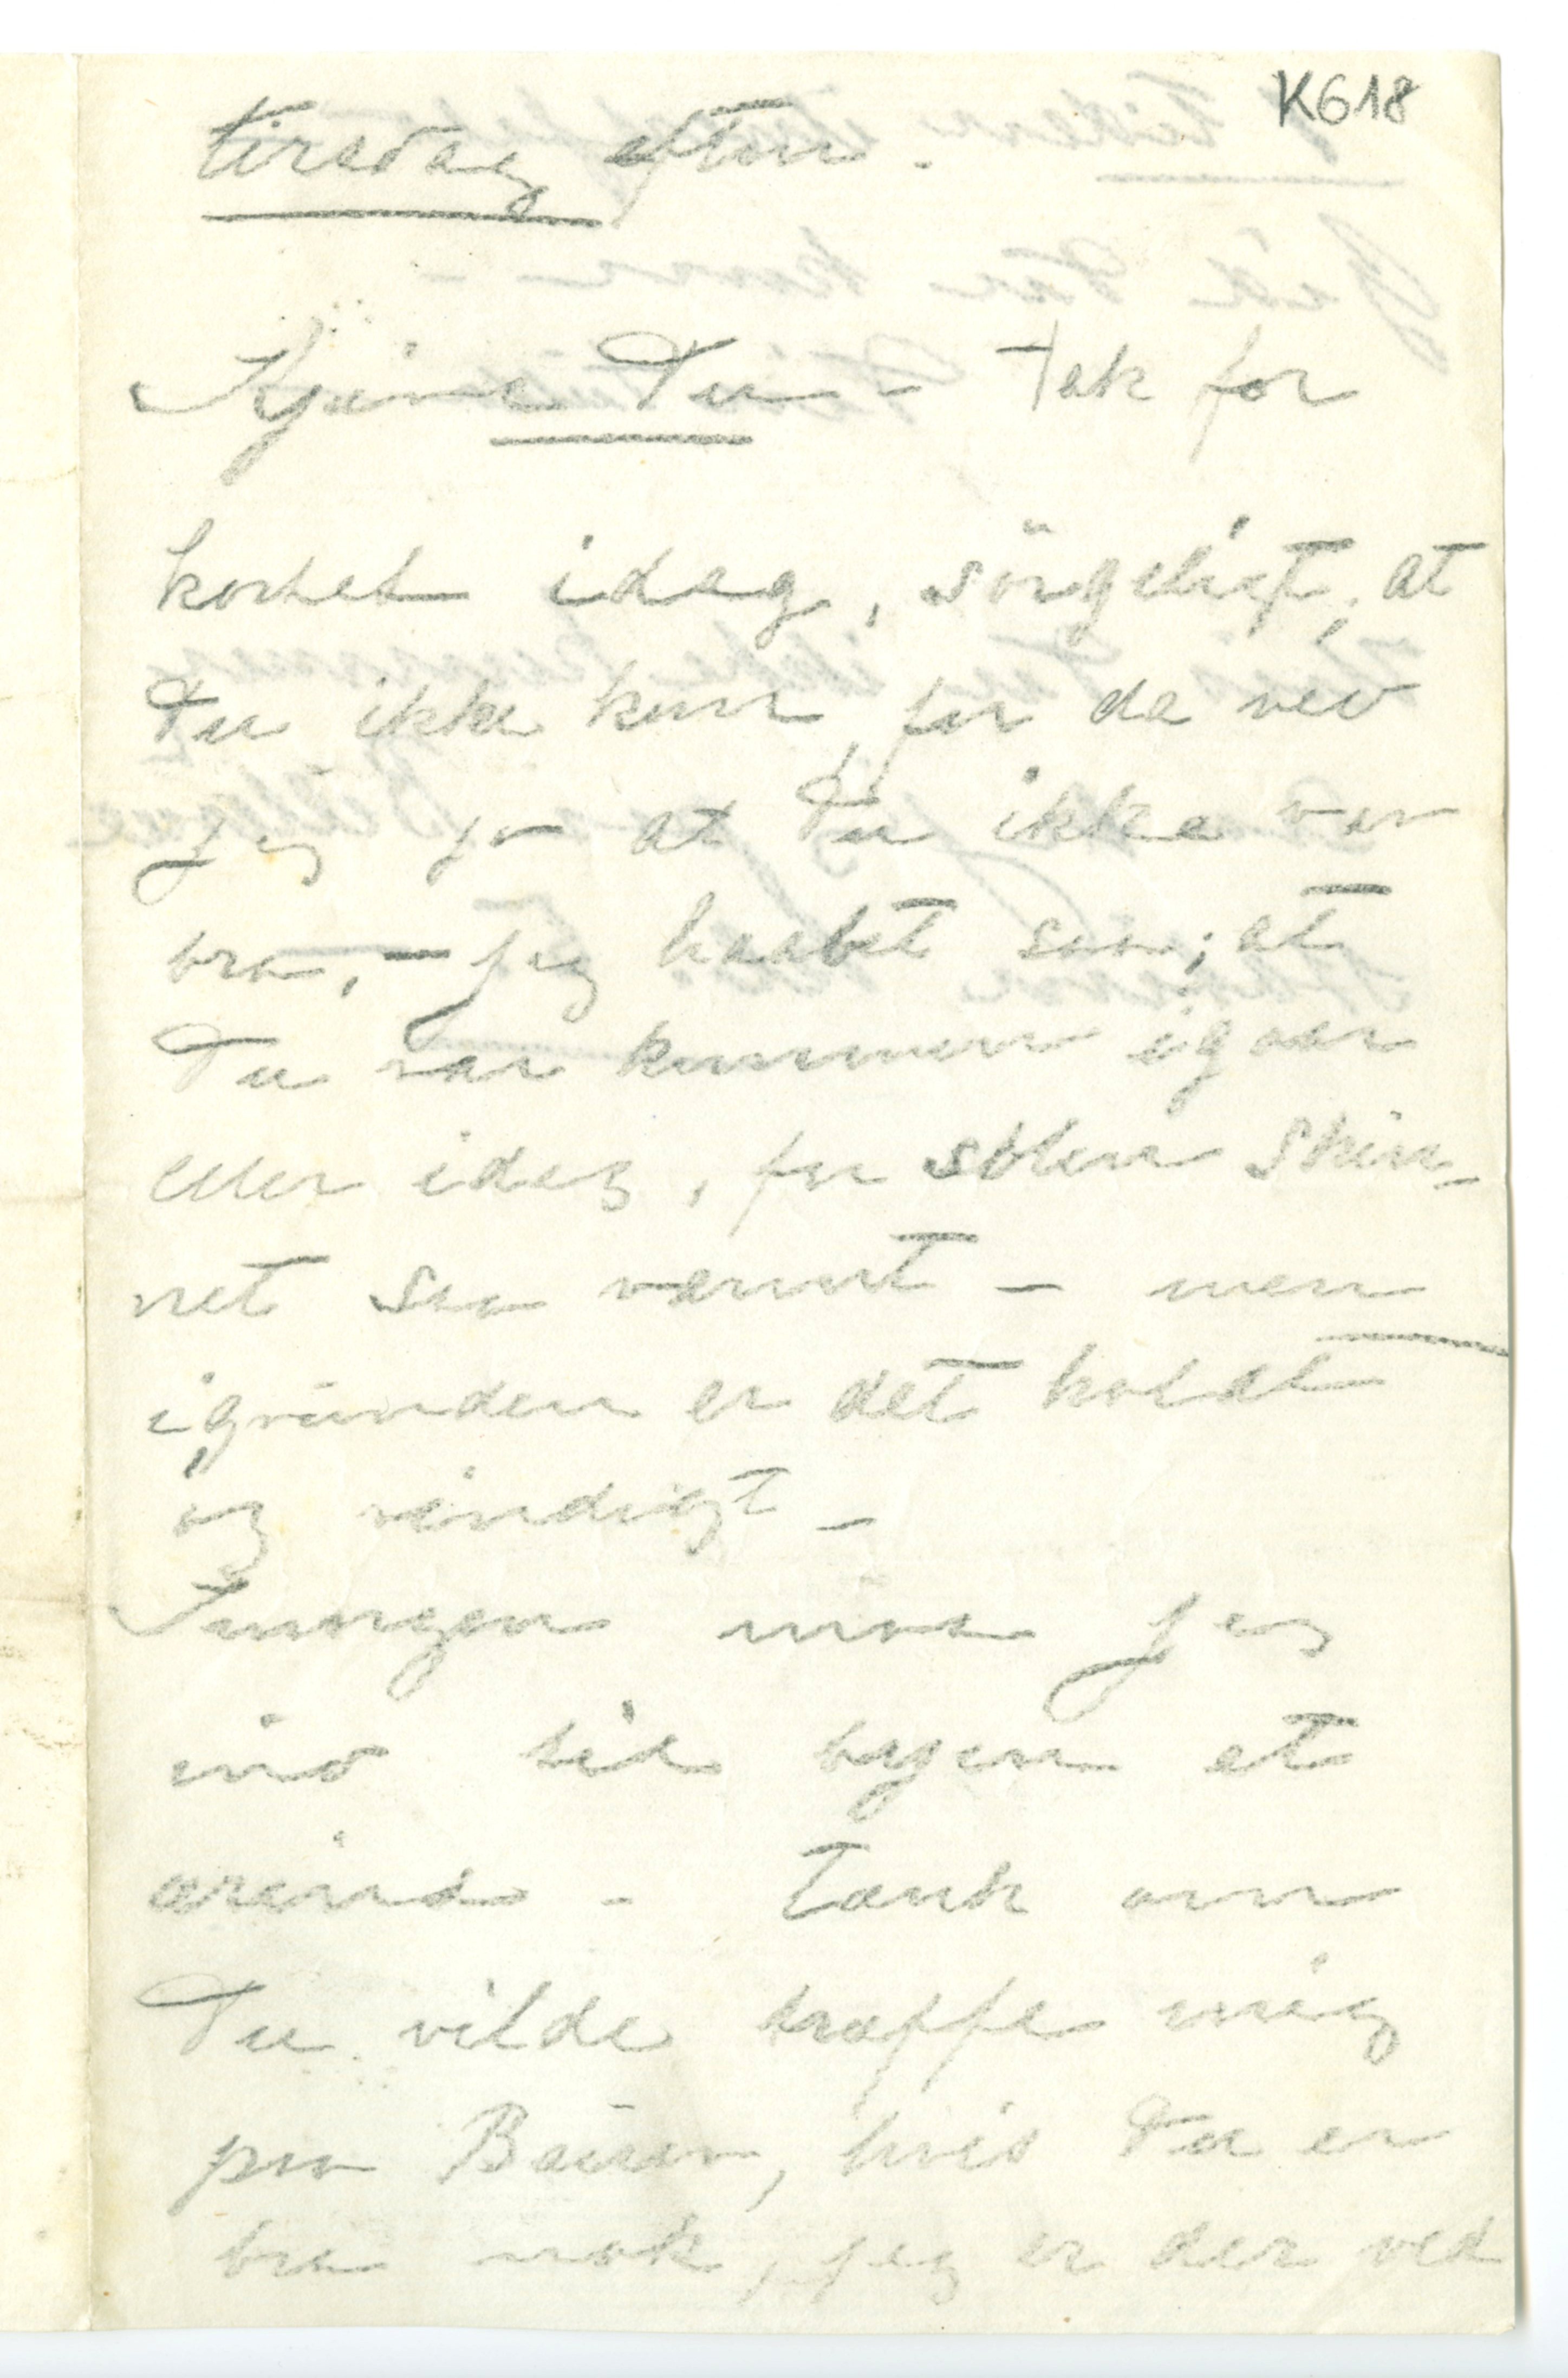 K618
tirsdag eftm.
Kjære Du – Tak for
kortet idag, sörgeligt, at
Du ikke kom, for da ved
jeg jo at Du ikke var
bra, – jeg haabet saa; at
Du var kommen igaar
eller idag, for solen skin-
net saa varmt – men
igrunden er det koldt
og vindigt –
Imorgen maa jeg
ind til byen et
ærind – Tænk om
Du vilde træffe mig
paa Bauren, hvis Du er
bra nok, jeg er der ved